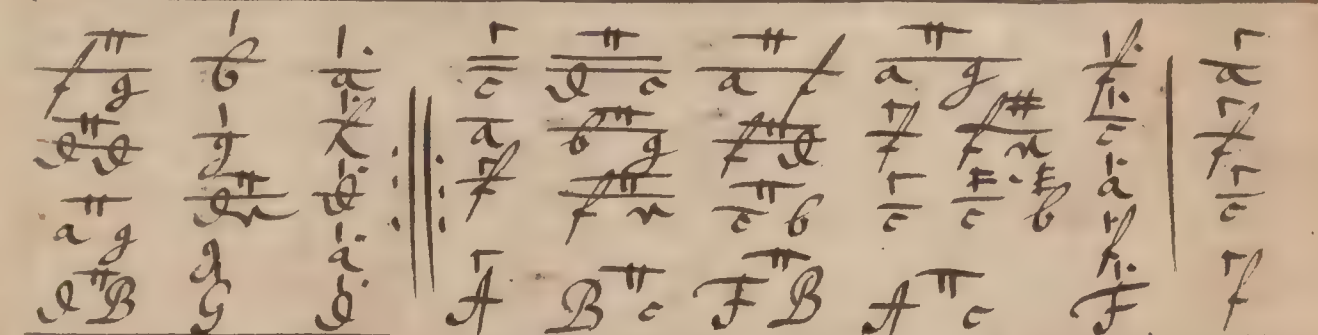 f g b a c d c a f a g f a
d d g f a b g f d f f n c f
a g d n d f f n c b c c b a c
d B G d A B c F B A c F f